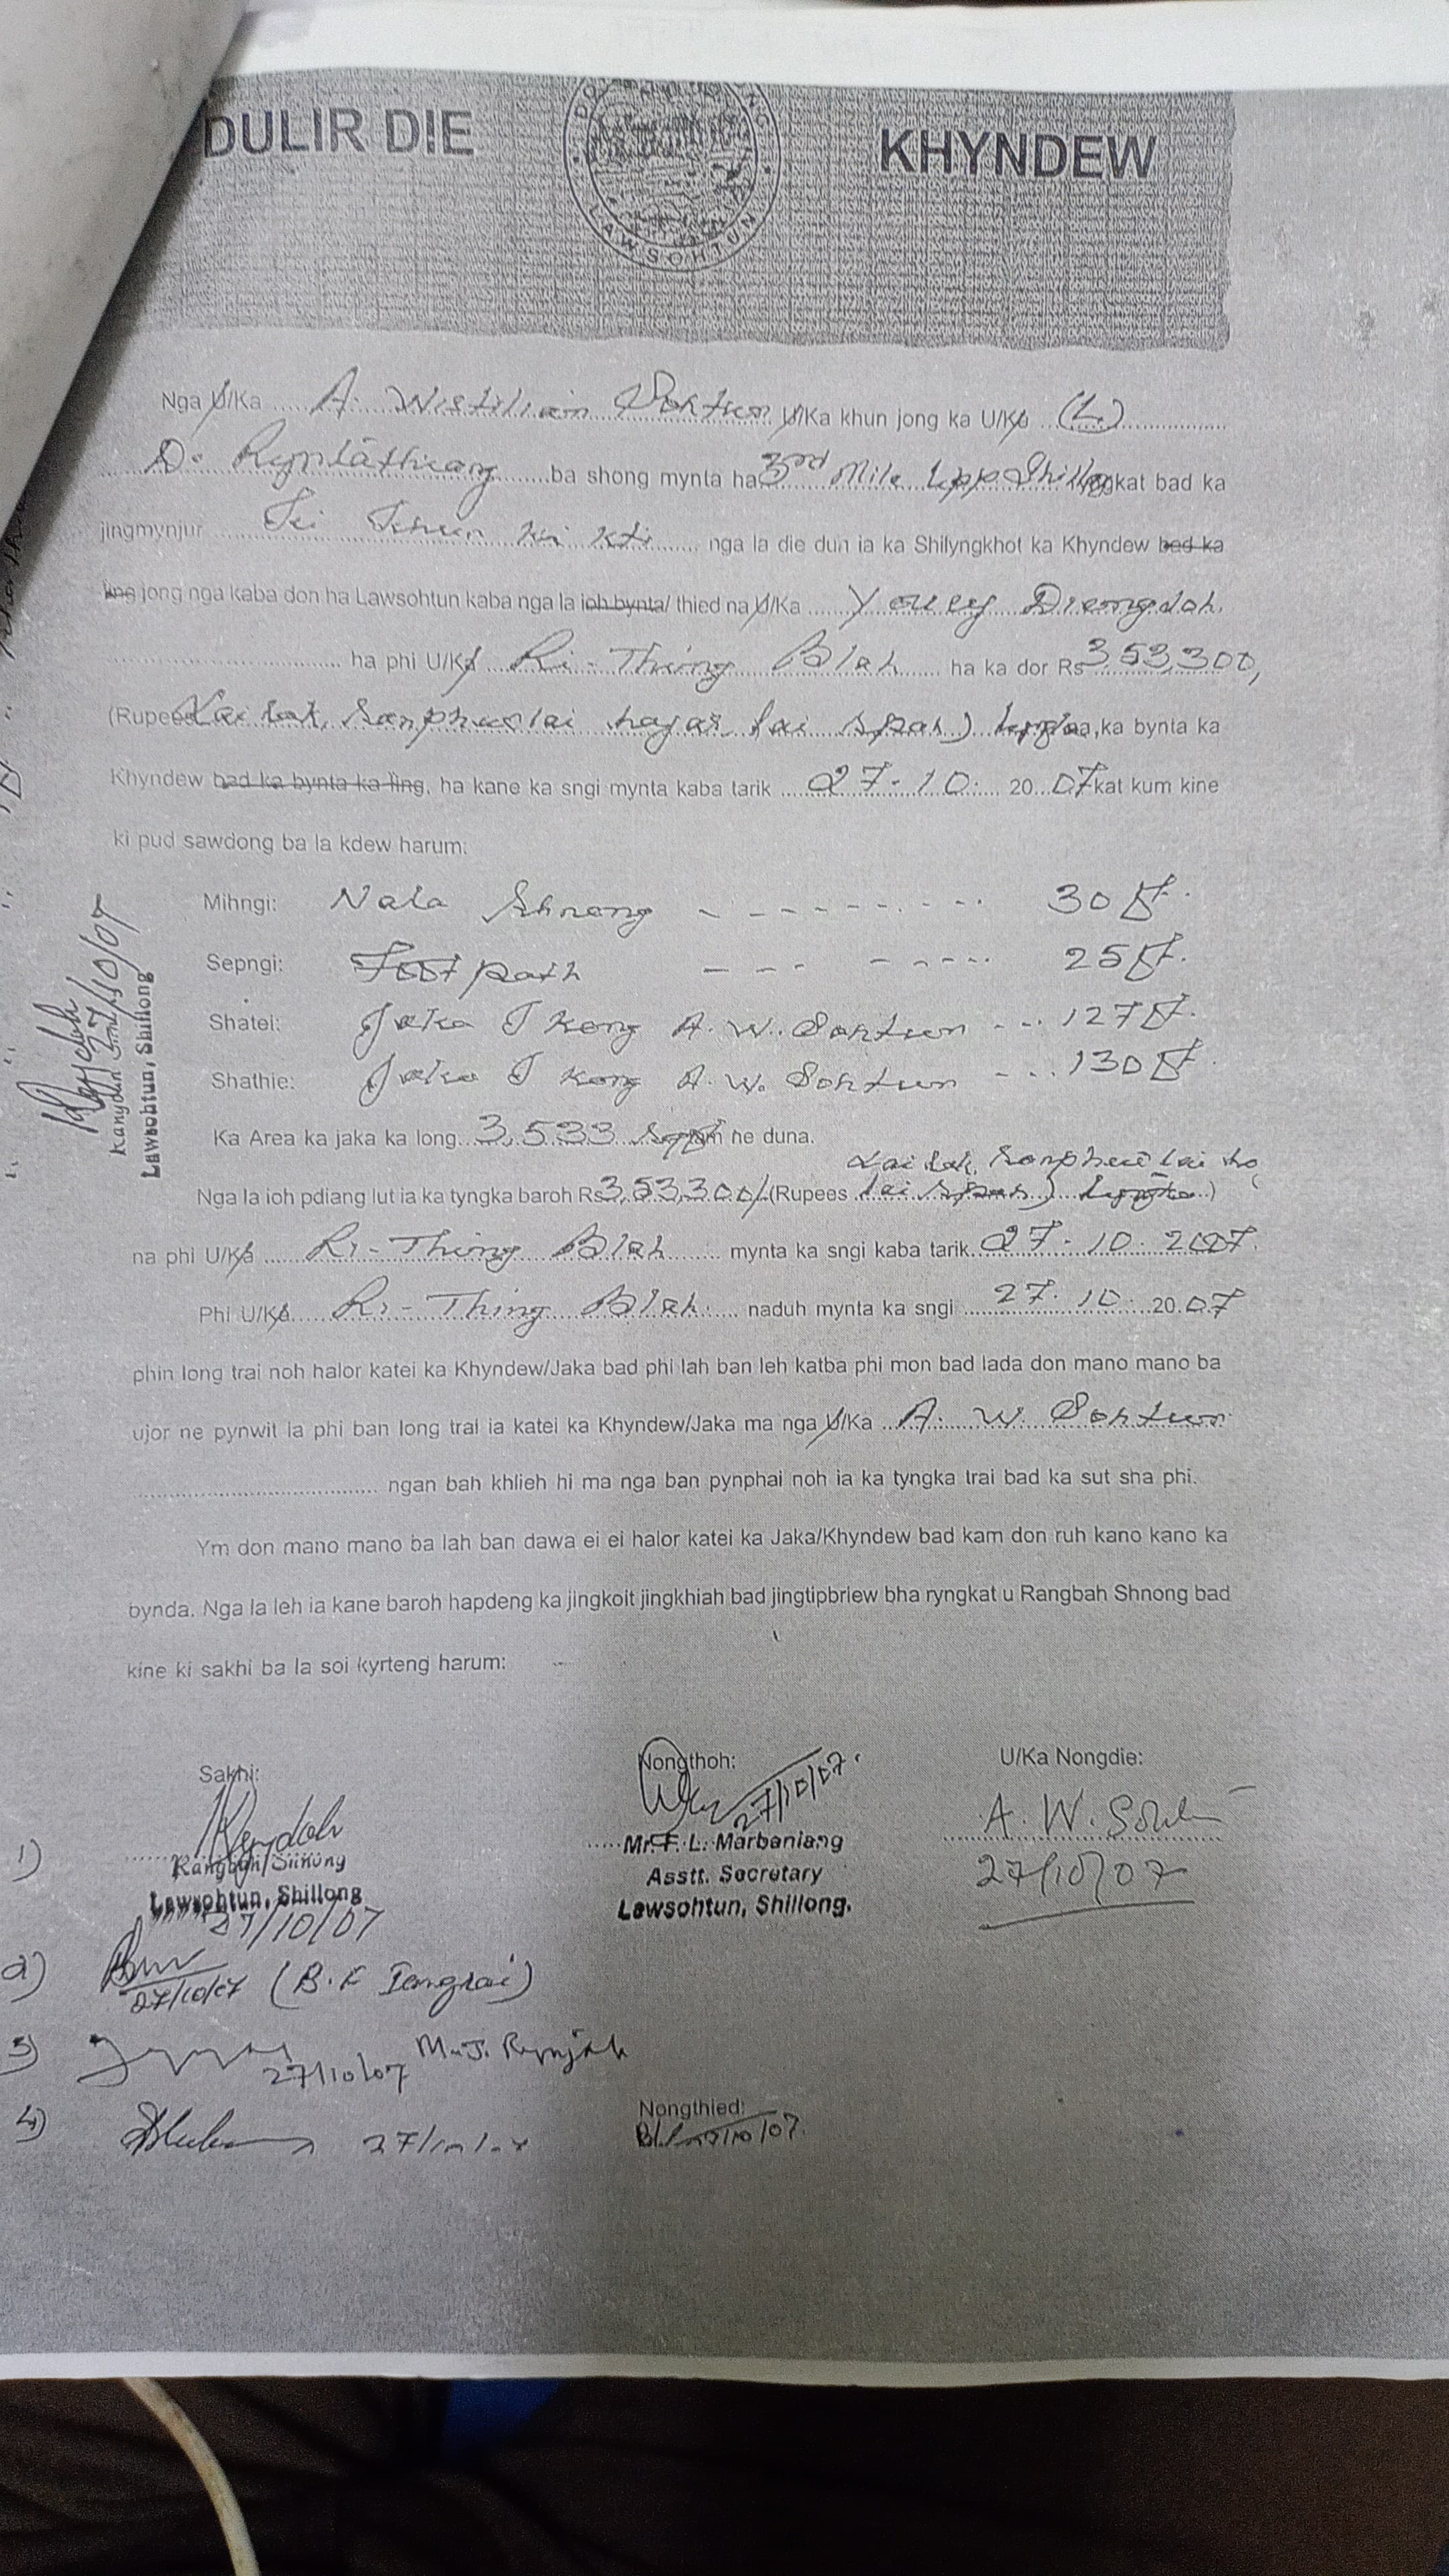 DULIR DIE KHYNDEW
LAWSOHTUN
Nga U/Ka A. Wistilian Sohtun U/Ka khun jong ka U/Ka (L)
D. Ryntathiang ba shong mynta ha 3rd Mile Upp Shillong ryngkat bad ka
jingmynjur ki khun ki kti nga la die dun ia ka Shilyngkhot ka Khyndew bad ka
ïing jong nga kaba don ha Lawsohtun kaba nga la ioh bynta/ thied na U/Ka Diengdoh
ha phi U/Ka Ri-Thing Blah ha ka dor Rs 3,53,300/
(Rupees Lai lak, sanphew lai hajar lai spah) lynda, ka bynta ka
Khyndew bad ka bynta ka ïing, ha kane ka sngi mynta kaba tarik 27-10- 20 07 kat kum kine
ki pud sawdong ba la kdew harum:
Mihngi: Nala Shnong 30 ft.
Sepngi: Foot path 25 ft.
Shatei: Jaka I Kong A. W. Sohtun 127 ft.
Shathie: Jaka I Kong A. W. Sohtun 130 ft.
Ka Area ka jaka ka long 3,533 sqft ne duna.
Lai lak, sanphew lai
Nga la ioh pdiang lut ia ka tyngka baroh Rs 3,53,300/- (Rupees lai spah)
na phi U/Ka Ri-Thing Blah mynta ka sngi kaba tarik 27.10.2007.
Phi U/Ka Ri-Thing Blah naduh mynta ka sngi 27.10. 20 07
phin long trai noh halor katei ka Khyndew/Jaka bad phi lah ban leh katba phi mon bad lada don mano mano ba
ujor ne pynwit ia phi ban long trai ia katei ka Khyndew/Jaka ma nga U/Ka A. W. Sohtun
ngan bah khlieh hi ma nga ban pynphai noh ia ka tyngka trai bad ka sut sha phi.
Ym don mano mano ba lah ban dawa ei ei halor katei ka Jaka/Khyndew bad kam don ruh kano kano ka
bynda. Nga la leh ia kane baroh hapdeng ka jingkoit jingkhiah bad jingtipbriew bha ryngkat u Rangbah Shnong bad
kine ki sakhi ba la soi kyrteng harum:
27/10/07
Lawsohtun, Shillong
Sakhi: Nongthoh: U/Ka Nongdie:
27/10/07.
A. W. Sohtun
1)
Rangbah Shnong
Lawsohtun, Shillong
27/10/07
Mr. F. L. Marbaniang
Asstt. Secretary
Lawsohtun, Shillong.
27/10/07
2) 27/10/07 (B.F Tengrai)
3) 27/10/07 M.J. Rynjah
4)
Nongthied: